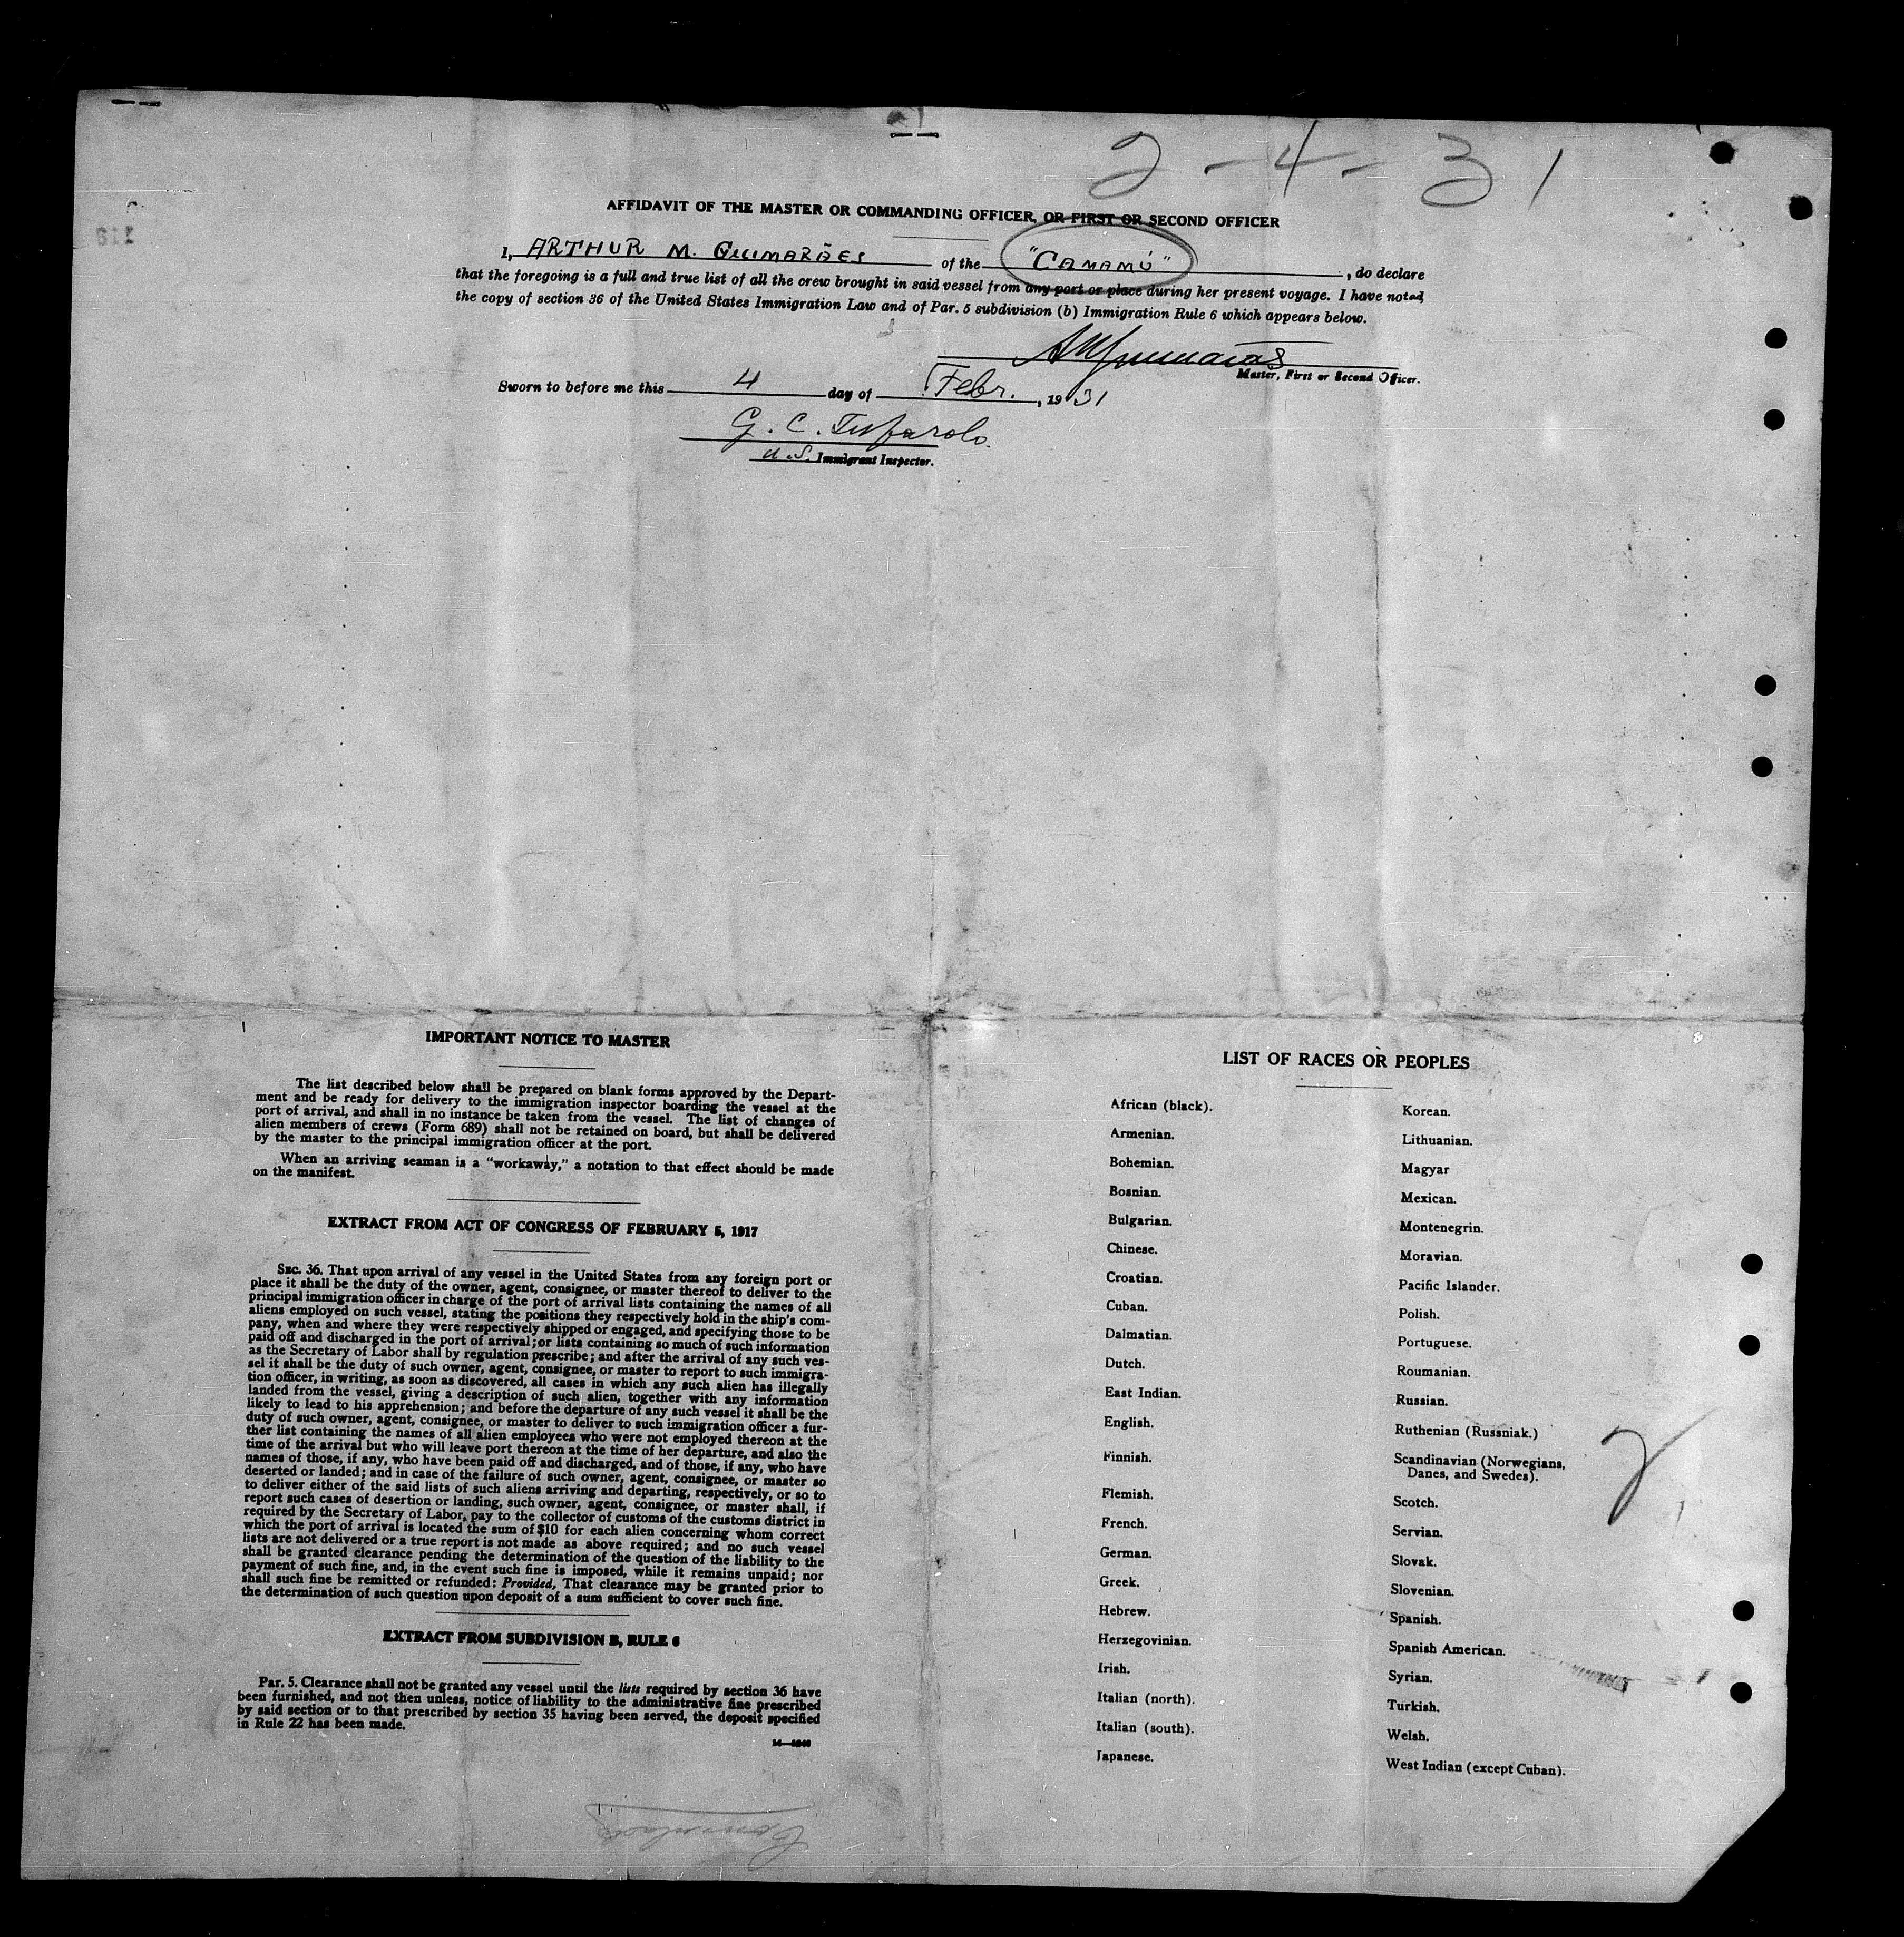 2-4-31
AFFIDAVIT OF THE MASTER OR COMMANDING OFFICER, OR FIRST OR SECOND OFFICER
I, ARTHUR M. GUIMARÃES of the "CAMAMÚ", do declare
that the foregoing is a full and true list of all the crew brought in said vessel from any port or place during her present voyage. I have noted
the copy of section 36 of the United States Immigration Law and of Par. 5 subdivision (b) Immigration Rule 6 which appears below.
AMGuimarães
Master, First or Second Officer.
Sworn to before me this 4 day of Febr., 1931
G. C.
U.S. Immigrant Inspector.
IMPORTANT NOTICE TO MASTER
The list described below shall be prepared on blank forms approved by the Depart-
ment and be ready for delivery to the immigration inspector boarding the vessel at the
port of arrival, and shall in no instance be taken from the vessel. The list of changes of
alien members of crews (Form 689) shall not be retained on board, but shall be delivered
by the master to the principal immigration officer at the port.
When an arriving seaman is a "workaway," a notation to that effect should be made
on the manifest.
EXTRACT FROM ACT OF CONGRESS OF FEBRUARY 5, 1917
SEC. 36. That upon arrival of any vessel in the United States from any foreign port or
place it shall be the duty of the owner, agent, consignee, or master thereof to deliver to the
principal immigration officer in charge of the port of arrival lists containing the names of all
aliens employed on such vessel, stating the positions they respectively hold in the ship's com-
pany, when and where they were respectively shipped or engaged, and specifying those to be
paid off and discharged in the port of arrival; or lists containing so much of such information
as the Secretary of Labor shall by regulation prescribe; and after the arrival of any such ves-
sel it shall be the duty of such owner, agent, consignee, or master to report to such immigra-
tion officer, in writing, as soon as discovered, all cases in which any such alien has illegally
landed from the vessel, giving a description of such alien, together with any information
likely to lead to his apprehension; and before the departure of any such vessel it shall be the
duty of such owner, agent, consignee, or master to deliver to such immigration officer a fur-
ther list containing the names of all alien employees who were not employed thereon at the
time of the arrival but who will leave port thereon at the time of her departure, and also the
names of those, if any, who have been paid off and discharged, and of those, if any, who have
deserted or landed; and in case of the failure of such owner, agent, consignee, or master so
to deliver either of the said lists of such aliens arriving and departing, respectively, or so to
report such cases of desertion or landing, such owner, agent, consignee, or master shall, if
required by the Secretary of Labor, pay to the collector of customs of the customs district in
which the port of arrival is located the sum of $10 for each alien concerning whom correct
lists are not delivered or a true report is not made as above required; and no such vessel
shall be granted clearance pending the determination of the question of the liability to the
payment of such fine, and, in the event such fine is imposed, while it remains unpaid; nor
shall such fine be remitted or refunded: Provided, That clearance may be granted prior to
the determination of such question upon deposit of a sum sufficient to cover such fine.
EXTRACT FROM SUBDIVISION B, RULE 6
Par. 5. Clearance shall not be granted any vessel until the lists required by section 36 have
been furnished, and not then unless, notice of liability to the administrative fine prescribed
by said section or to that prescribed by section 35 having been served, the deposit specified
in Rule 22 has been made.
LIST OF RACES OR PEOPLES
African (black).
Armenian.
Bohemian.
Bosnian.
Bulgarian.
Chinese.
Croatian.
Cuban.
Dalmatian.
Dutch.
East Indian.
English.
Finnish.
Flemish.
French.
German.
Greek.
Hebrew.
Herzegovinian.
Irish.
Italian (north).
Italian (south).
Japanese.
Korean.
Lithuanian.
Magyar
Mexican.
Montenegrin.
Moravian.
Pacific Islander.
Polish.
Portuguese.
Roumanian.
Russian.
Ruthenian (Russniak.)
Scandinavian (Norwegians,
Danes, and Swedes).
Scotch.
Servian.
Slovak.
Slovenian.
Spanish.
Spanish American.
Syrian.
Turkish.
Welsh.
West Indian (except Cuban).
2